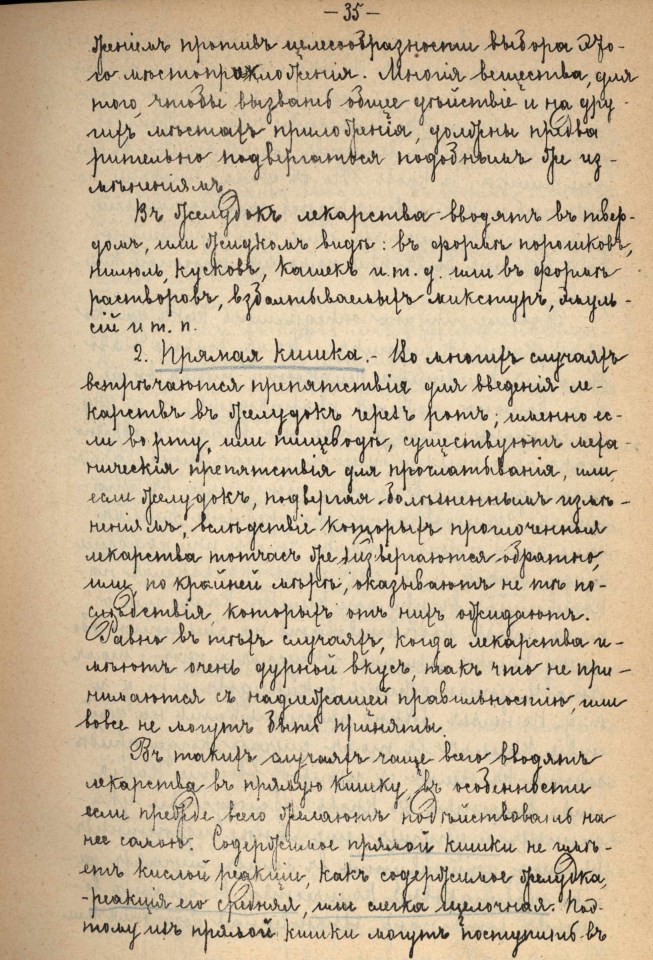 — 35 —
женіемъ противъ целесообразности выбора это-
го мѣстоприложенія. Многія вещества, для
того, чтобы вызвать общее дѣйствіе и на дру-
гихъ мѣстахъ приложенія, должны предва
рительно подвергаться подобнымъ же из-
мѣненіямъ.
Въ желудокъ лекарства вводятъ въ твер-
домъ, или жидкомъ видѣ: въ формѣ порошковъ,
пилюль, кусковъ, кашекъ и т. д. или въ формѣ
растворовъ, взбалтываемыхъ микстуръ, эмуль-
сій и т. п.
2. Прямая кишка. - Во многихъ случаяхъ
встрѣчаются препятствія для введенія ле-
карствъ въ желудокъ черезъ ротъ; именно ес-
ли во рту, или пищеводѣ, существуютъ меха-
ническія препятствія для проглатыванія, или,
если желудокъ, подверженъ болѣзненнымъ измѣ-
неніямъ, вслѣдствіе которыхъ проглоченныя
лекарства тотчасъ же извергаются обратно,
или, по крайней мѣрѣ, оказываютъ не тѣ по-
слѣдствія, которыхъ отъ нихъ ожидаютъ.
Равно въ тѣхъ случаяхъ, когда лекарства и-
мѣютъ очень дурной вкусъ, такъ что не при-
нимаются съ надлежащей правильностію, или
вовсе не могутъ быть приняты.
Въ такихъ случаяхъ чаще всего вводятъ
лекарства въ прямую кишку, въ особенности
если прежде всего желаютъ подѣйствовать на
нее самою. Содержимое прямой кишки не имѣ-
етъ кислой реакціи, какъ содержимое желудка,
-реакція его средняя, или слегка щелочная. Поэ-
тому изъ прямой кишки могутъ поступить въ